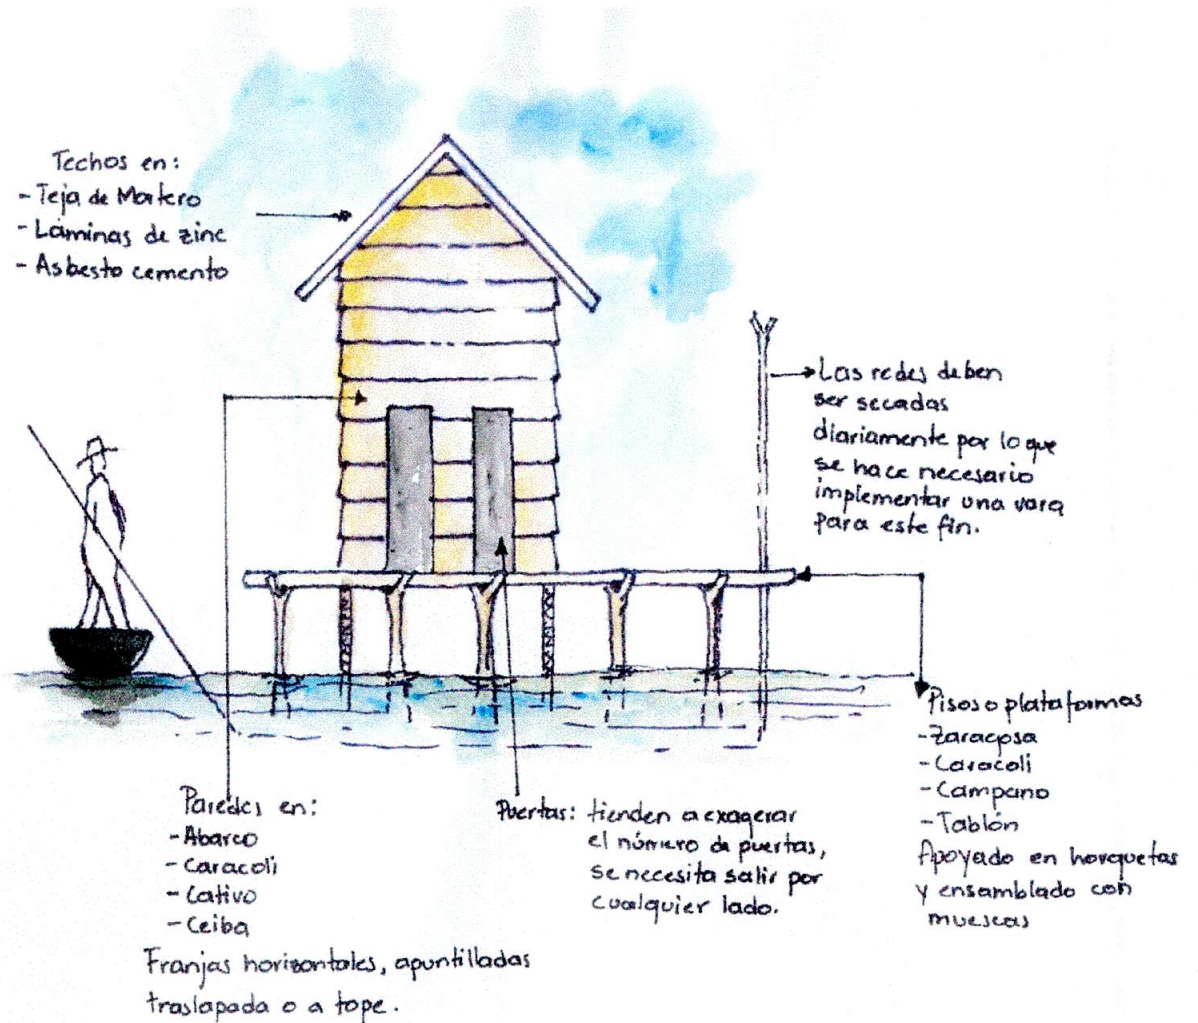 Techos en:
- Teja de Mortero
- Láminas de zinc
- Asbesto cemento
Las redes deben
ser secadas
diariamente por lo que
se hace necesario
implementar una vara
para este fin.
Pisos o plataformas
- Zaragosa
- Caracoli
- Campano
- Tablón
Apoyado en horquetas
y ensamblado con
muescas
Paredes en:
- Abarco
- Caracoli
- Cativo
- Ceiba
Franjas horizontales, apuntilladas
traslapada o a tope.
Puertas: tienden a exagerar
el número de puertas,
se necesita salir por
cualquier lado.